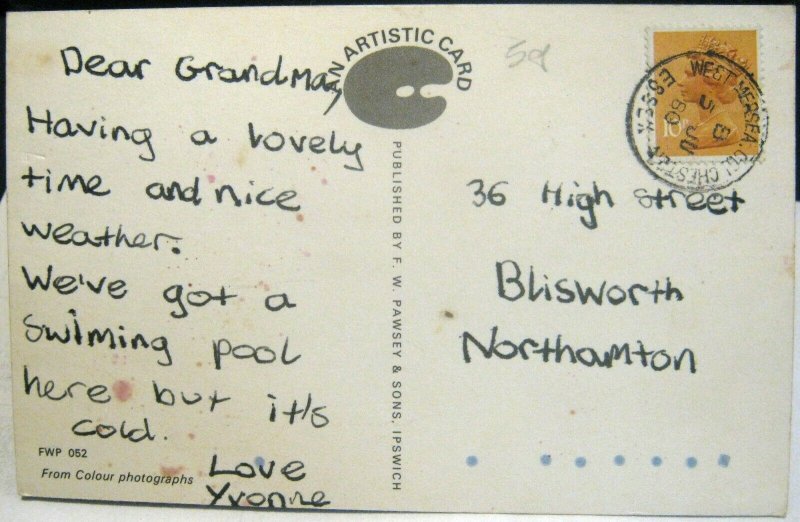 Dear Grandma,
Having a lovely
time and nice
weather.
We've got a
Swiming pool
here but it's
cold.
Love
Yvonne
FWP 052
From Colour photographs
AN ARTISTIC CARD
PUBLISHED BY F. W. PAWSEY & SONS, IPSWICH
5d
10P
WEST MERSEA, COLCHESTER
ESSEX
36 High street
Blisworth
Northamton